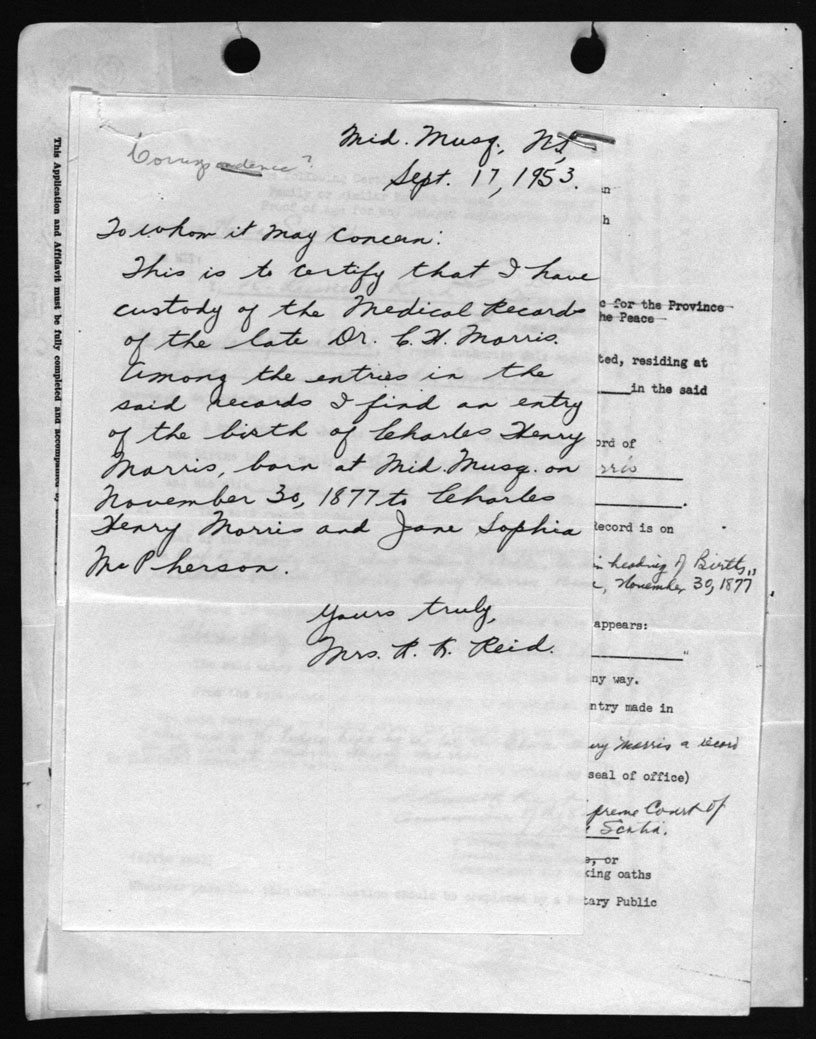 Mid. Musq., N.S.,
Correspondence?
Sept. 17, 1953.
To whom it may Concern:
This is to certify that I have
custody of the Medical Records
of the late Dr. C. H. Morris.
Among the entries in the
said records I find an entry
of the birth of Charles Henry
Morris, born at Mid. Musq. on
November 30, 1877 to Charles
Henry Morris and Jane Sophia
McPherson.
Yours truly,
Mrs. R. K. Reid.
This Application and Affidavit must be fully completed and accompanied by
c for the Province
he Peace
ted, residing at
in the said
ord of
rris
Record is on
heading of Births,,
November 30, 1877
appears:
"
ny way.
ntry made in
ry Morris a record
seal of office)
preme Court of
Scotia.
e, or
king oaths
tary Public